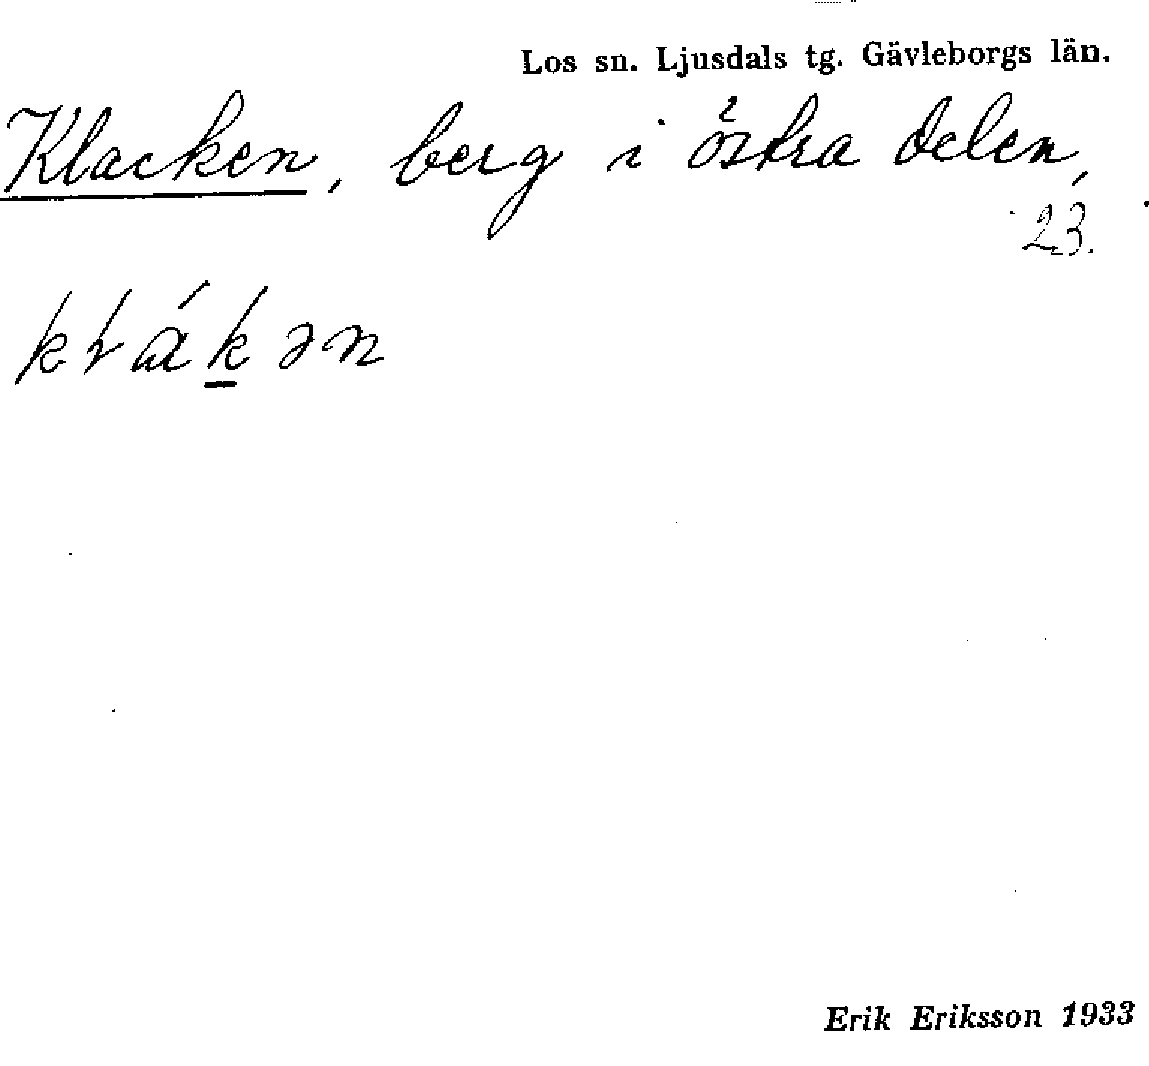 Los sn. Ljusdals tg. Gävleborgs län.
Klacken, berg i östra delen,
23.
kɫák̲ən
Erik Eriksson 1933